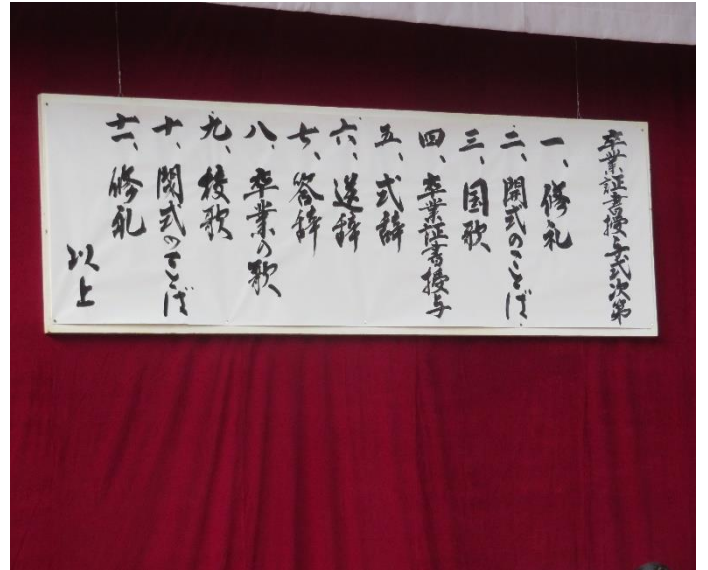 卒業証書授与式次第
一、修礼
二、開式のことば
三、国歌
四、卒業証書授与
五、式辞
六、送辞
七、答辞
八、卒業の歌
九、校歌
十、閉式のことば
十一、修礼
以上